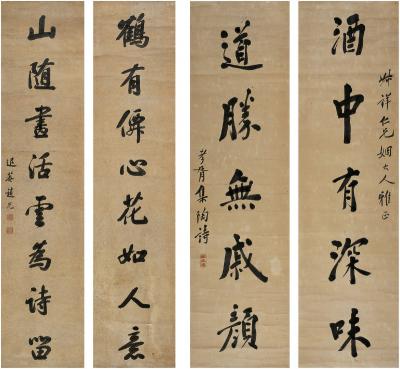 酒中有深味
祥仁兄姻大人雅正
道勝無戚顏
孝胥集陶詩
鶴有僊心花如人意
山隨畫活雲為詩留
退菴趙光